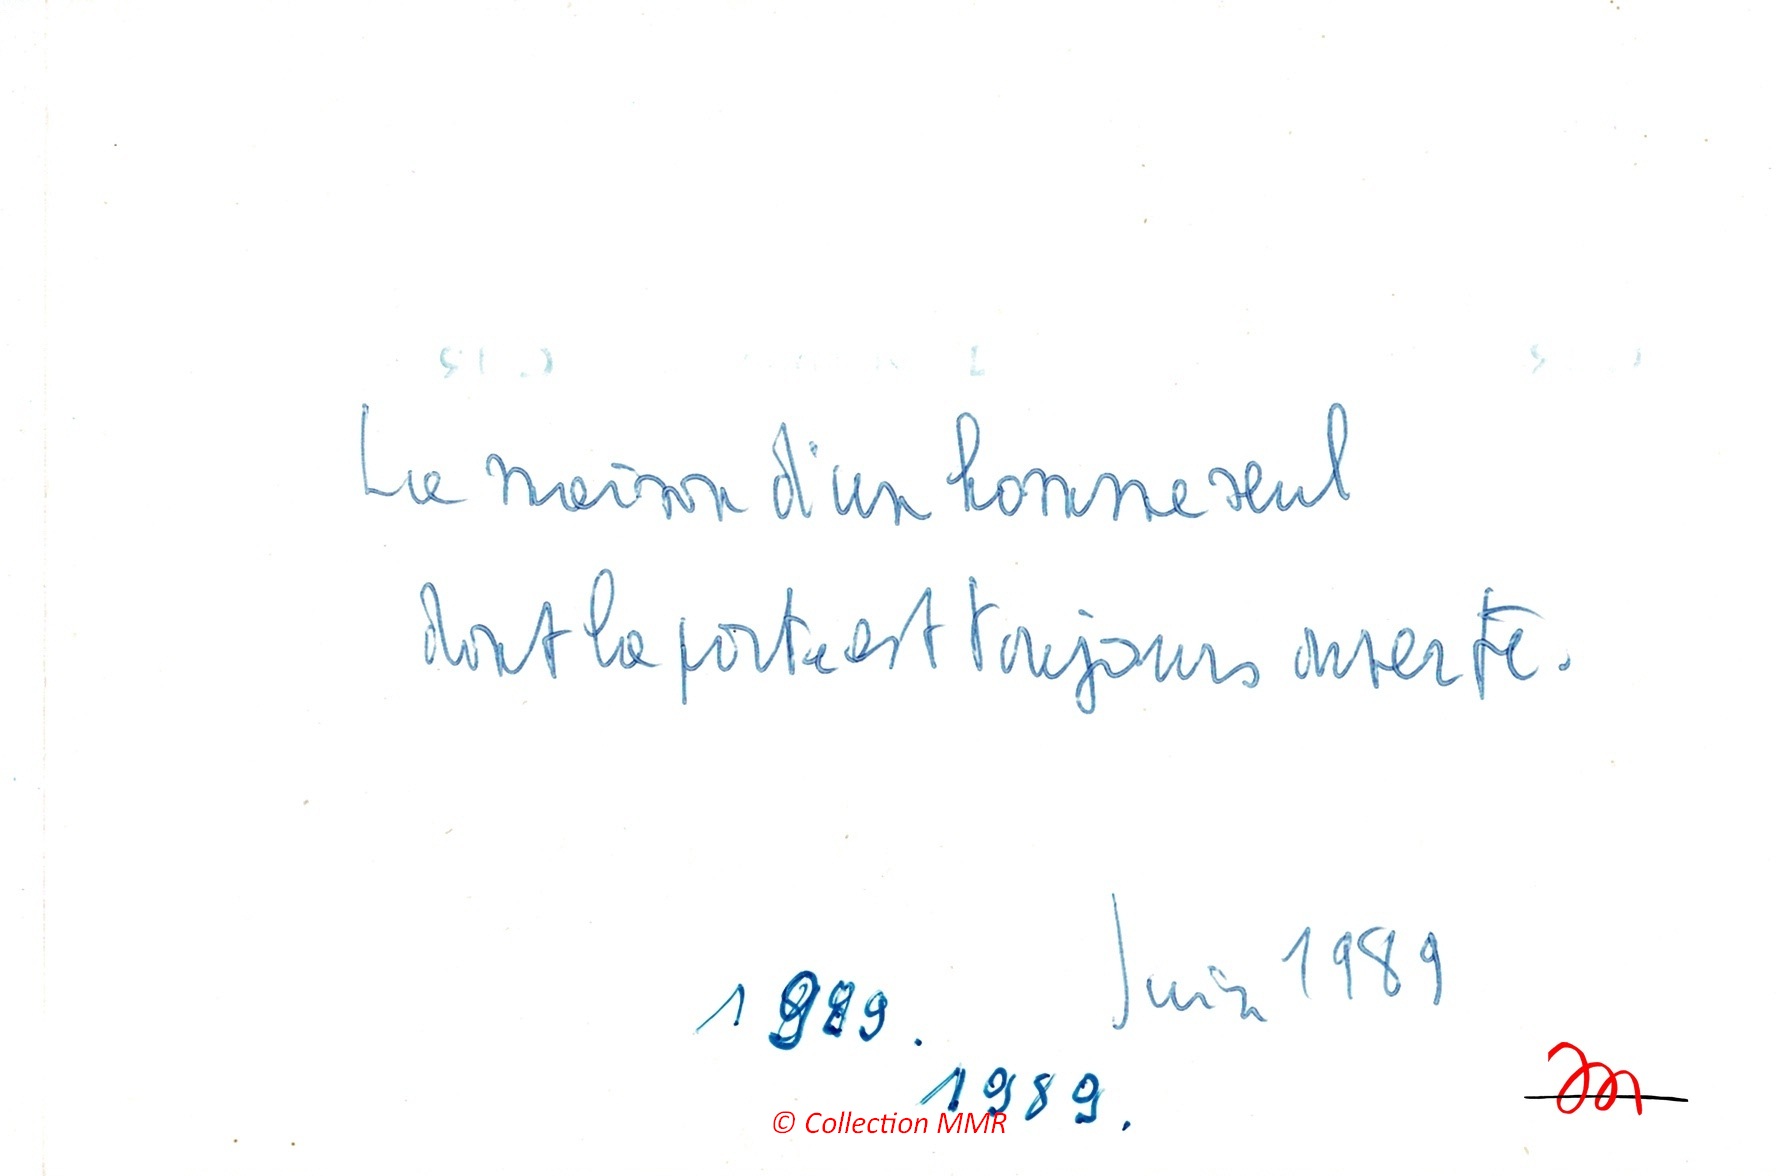 La maison d'un homme seul
dont la porte est toujours ouverte.
Juin 1989
1989.
1989.
© Collection MMR